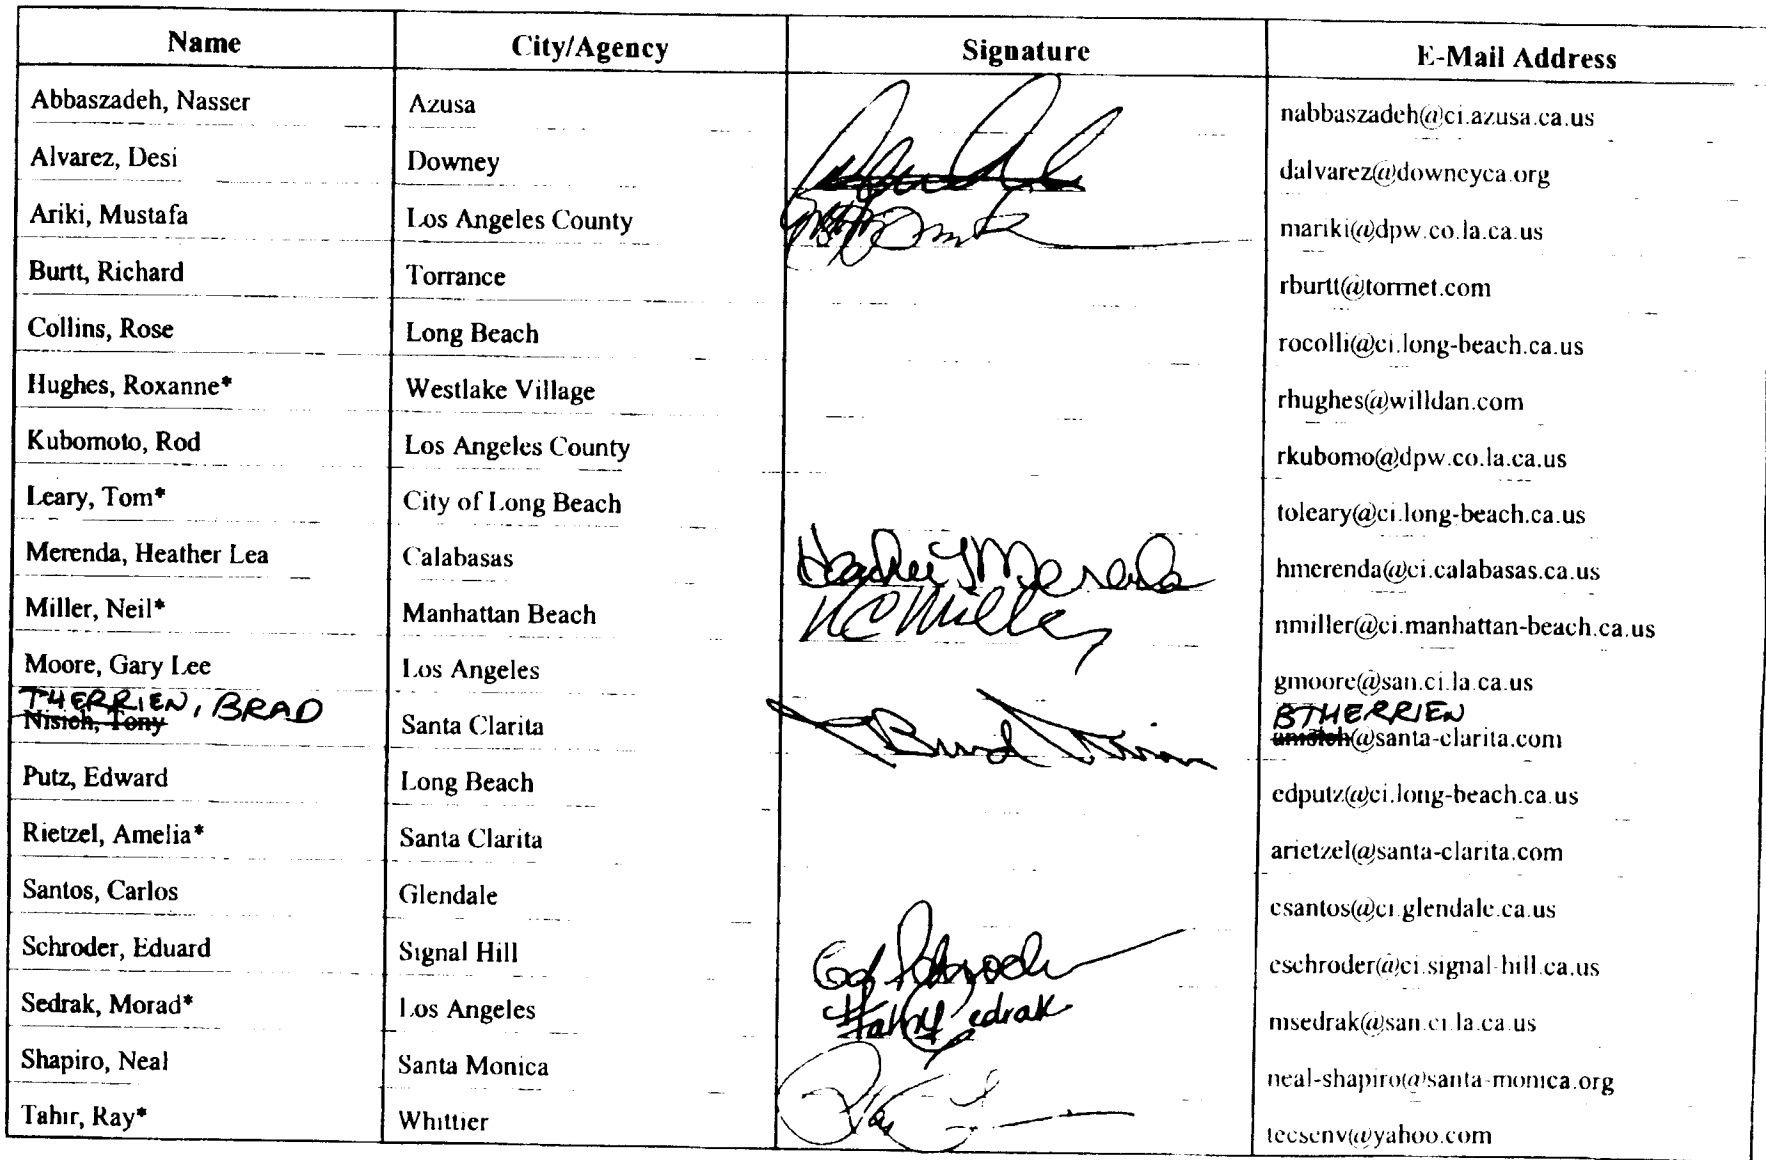 Name City/Agency Signature E-Mail Address
Abbaszadeh, Nasser Azusa nabbaszadeh@ci.azusa.ca.us
Alvarez, Desi Downey dalvarez@downeyca.org
Ariki, Mustafa Los Angeles County mariki@dpw.co.la.ca.us
Burtt, Richard Torrance rburtt@torrnet.com
Collins, Rose Long Beach rocolli@ci.long-beach.ca.us
Hughes, Roxanne* Westlake Village rhughes@willdan.com
Kubomoto, Rod Los Angeles County rkubomo@dpw.co.la.ca.us
Leary, Tom* City of Long Beach toleary@ci.long-beach.ca.us
Merenda, Heather Lea Calabasas Heather Merenda hmerenda@ci.calabasas.ca.us
Miller, Neil* Manhattan Beach NC Miller nmiller@ci.manhattan-beach.ca.us
Moore, Gary Lee Los Angeles gmoore@san.ci.la.ca.us
THERRIEN, BRAD BTHERRIEN
Nisich, Tony Santa Clarita Brad @santa-clarita.com
Putz, Edward Long Beach edputz@ci.long-beach.ca.us
Rietzel, Amelia* Santa Clarita arietzel@santa-clarita.com
Santos, Carlos Glendale csantos@ci.glendale.ca.us
Schroder, Eduard Signal Hill Ed Schroder eschroder@ci.signal-hill.ca.us
Sedrak, Morad* Los Angeles Sedrak msedrak@san.ci.la.ca.us
Shapiro, Neal Santa Monica neal-shapiro@santa-monica.org
Tahir, Ray* Whittier Ray tecsenv@yahoo.com